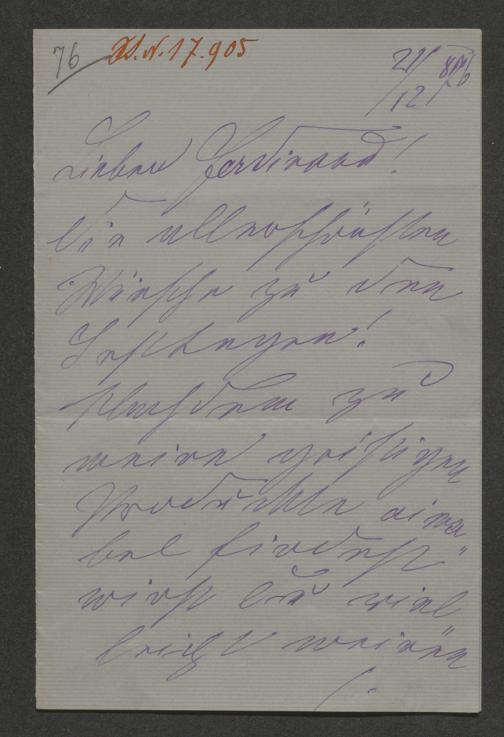 76 H.I.N. 17.905
21/12 876
Lieber Ferdinand!
Die allerschönsten
Wünsche zu den
Festtagen!
Nachdem Du
meine geistigen
Produkte aima-
bel findest"
wirst Du viel
leicht meinen